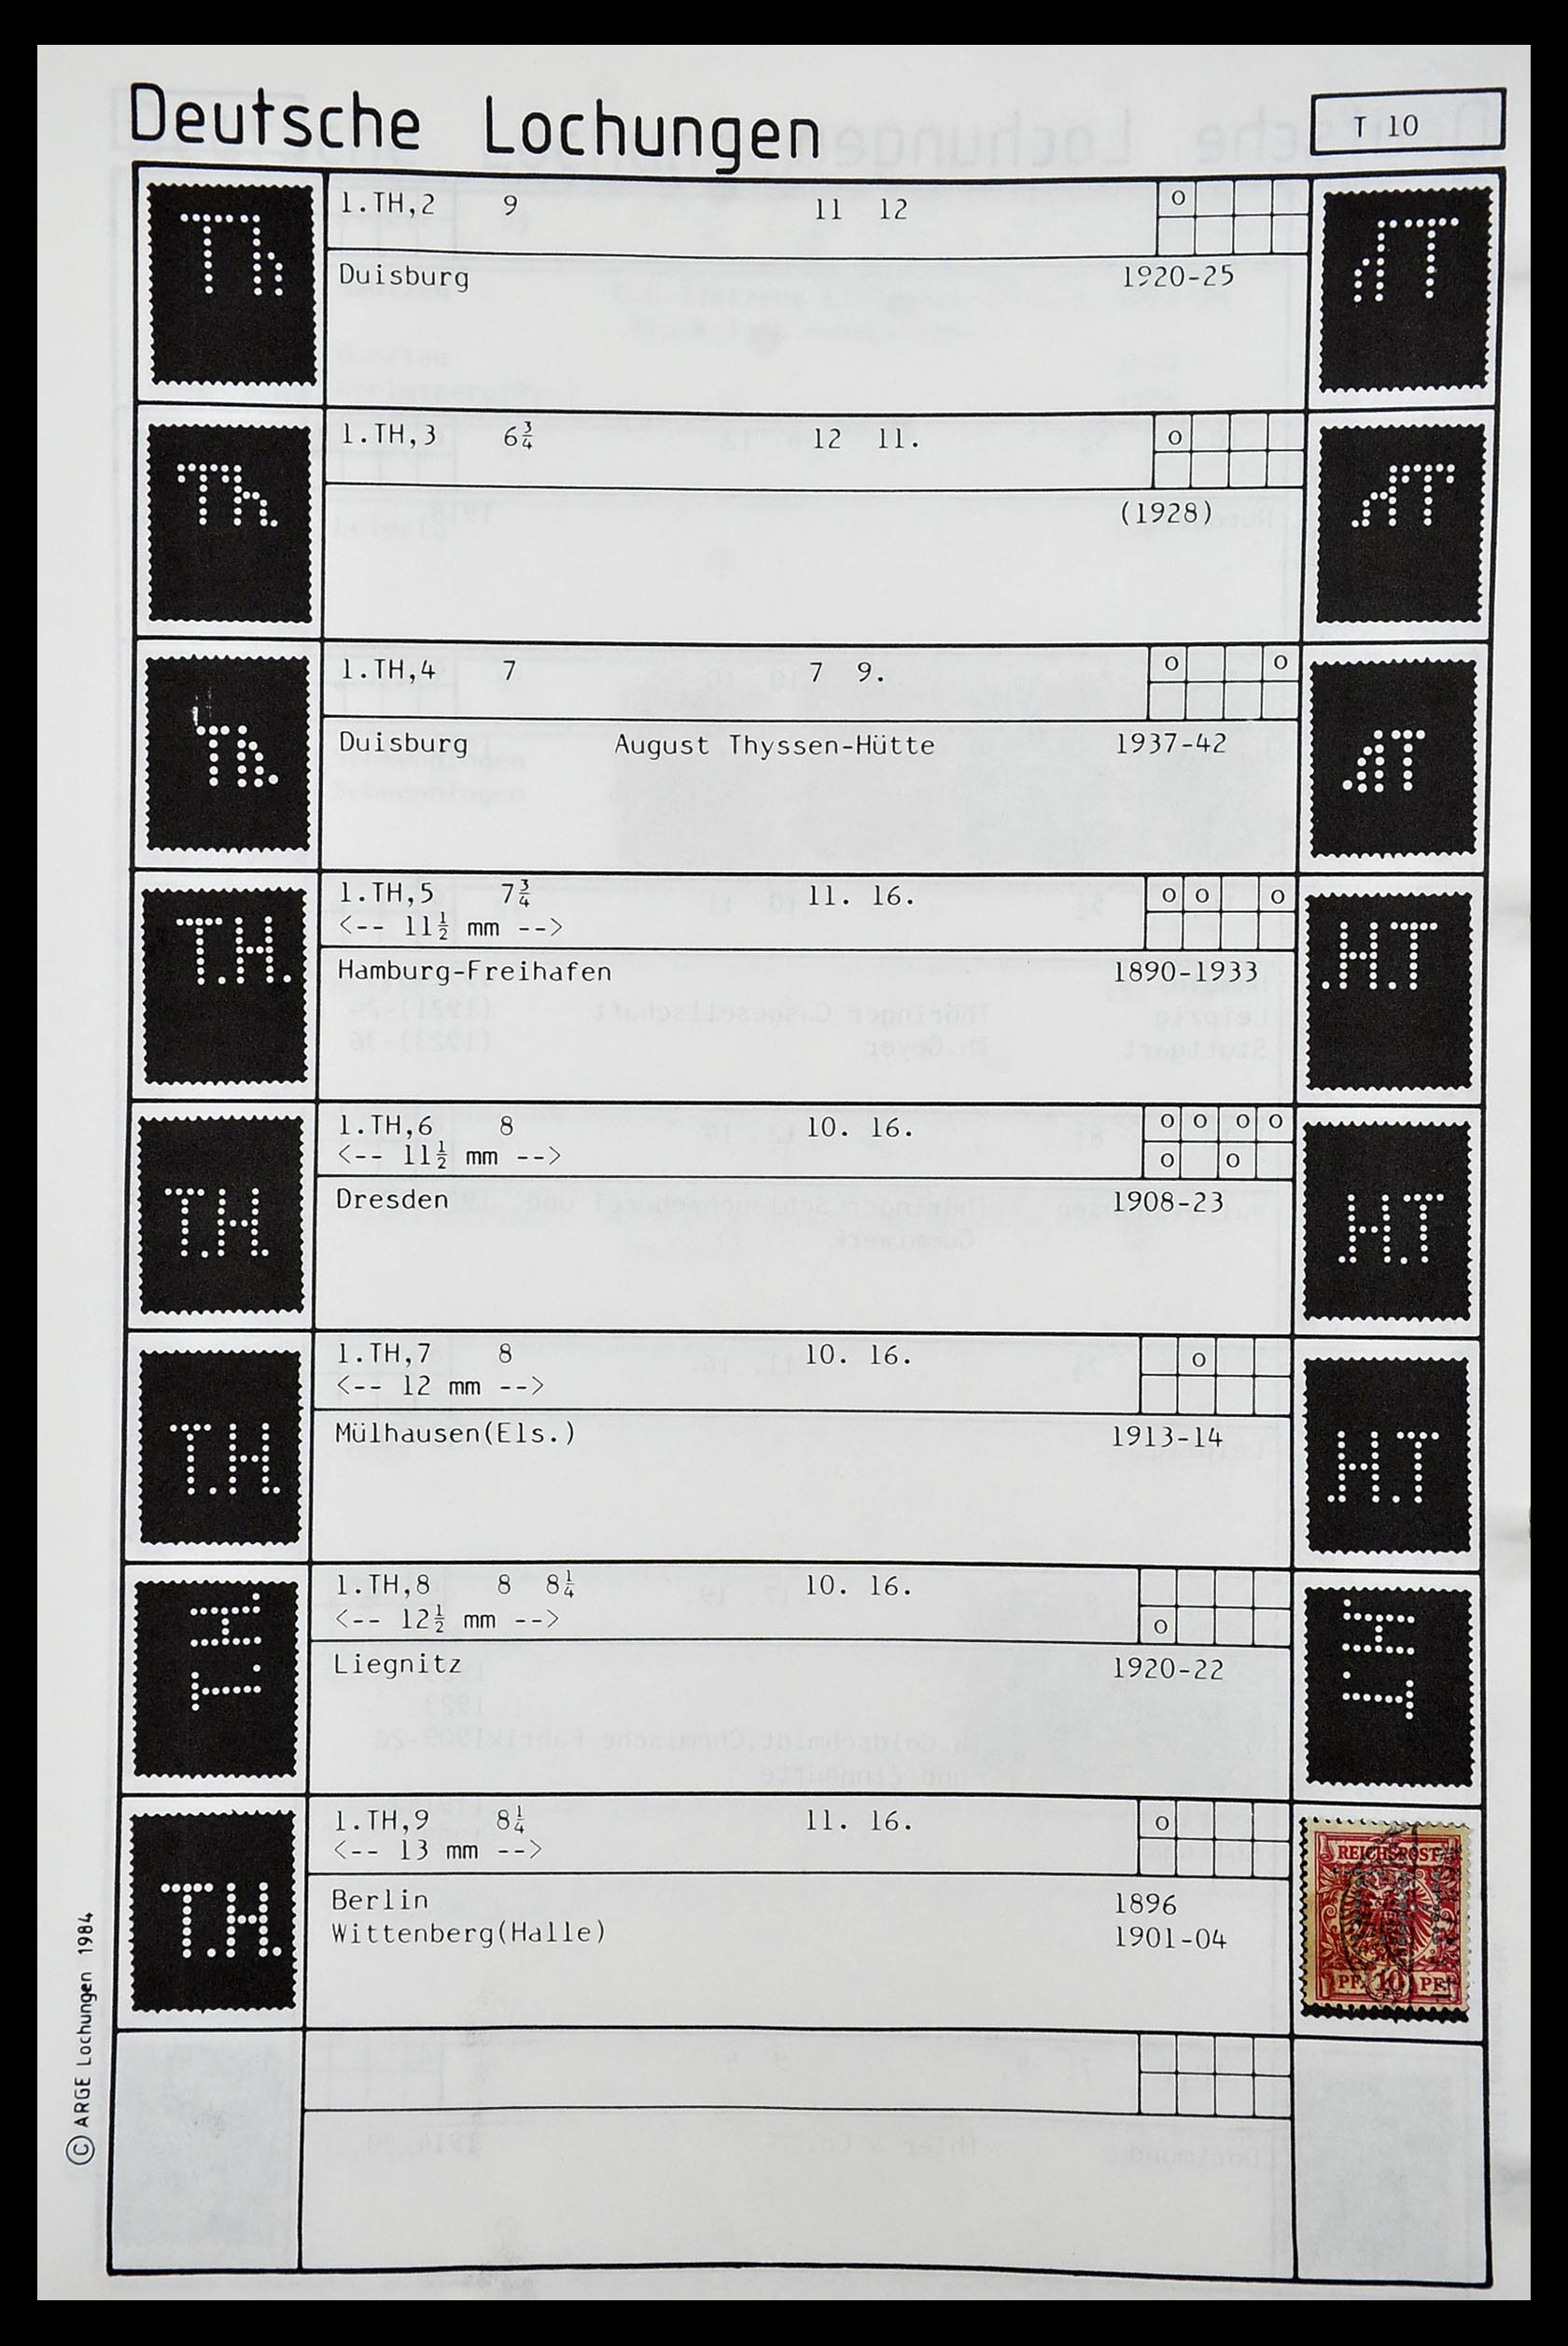 Deutsche Lochungen
T 10
Th
1.TH,2 9 11 12 o
Duisburg 1920-25
Th
1.TH,3 6¾ 12 11. o
(1928)
Th.
1.TH,4 7 7 9. o o
Duisburg August Thyssen-Hütte 1937-42
T.H.
1.TH,5 7¾ 11. 16. o o o
<-- 11½ mm -->
Hamburg-Freihafen 1890-1933
T.H.
1.TH,6 8 10. 16. o o o o
<-- 11½ mm --> o o
Dresden 1908-23
T.H.
1.TH,7 8 10. 16. o
<-- 12 mm -->
Mülhausen(Els.) 1913-14
T.H.
1.TH,8 8 8¼ 10. 16.
<-- 12½ mm --> o
Liegnitz 1920-22
T.H.
1.TH,9 8¼ 11. 16. o
<-- 13 mm -->
Berlin 1896
Wittenberg(Halle) 1901-04
REICHSPOST
PF 10 PF
© ARGE Lochungen 1984